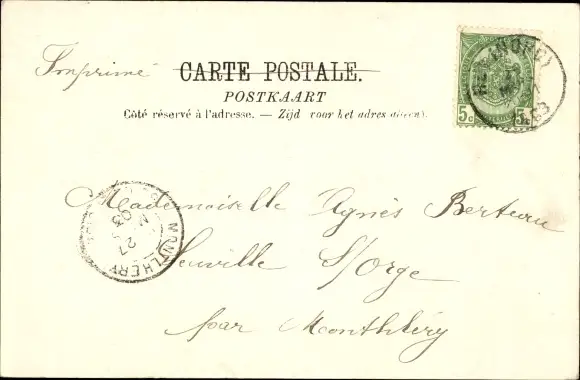 Imprimé
CARTE POSTALE.
POSTKAART
Côté réservé à l'adresse. — Zijd voor het adres alleen).
5c 5c
(NORD)
Mademoiselle Agnès Berteau
MONTLHERY
27
03
Leuville S/Orge
par Monthléry